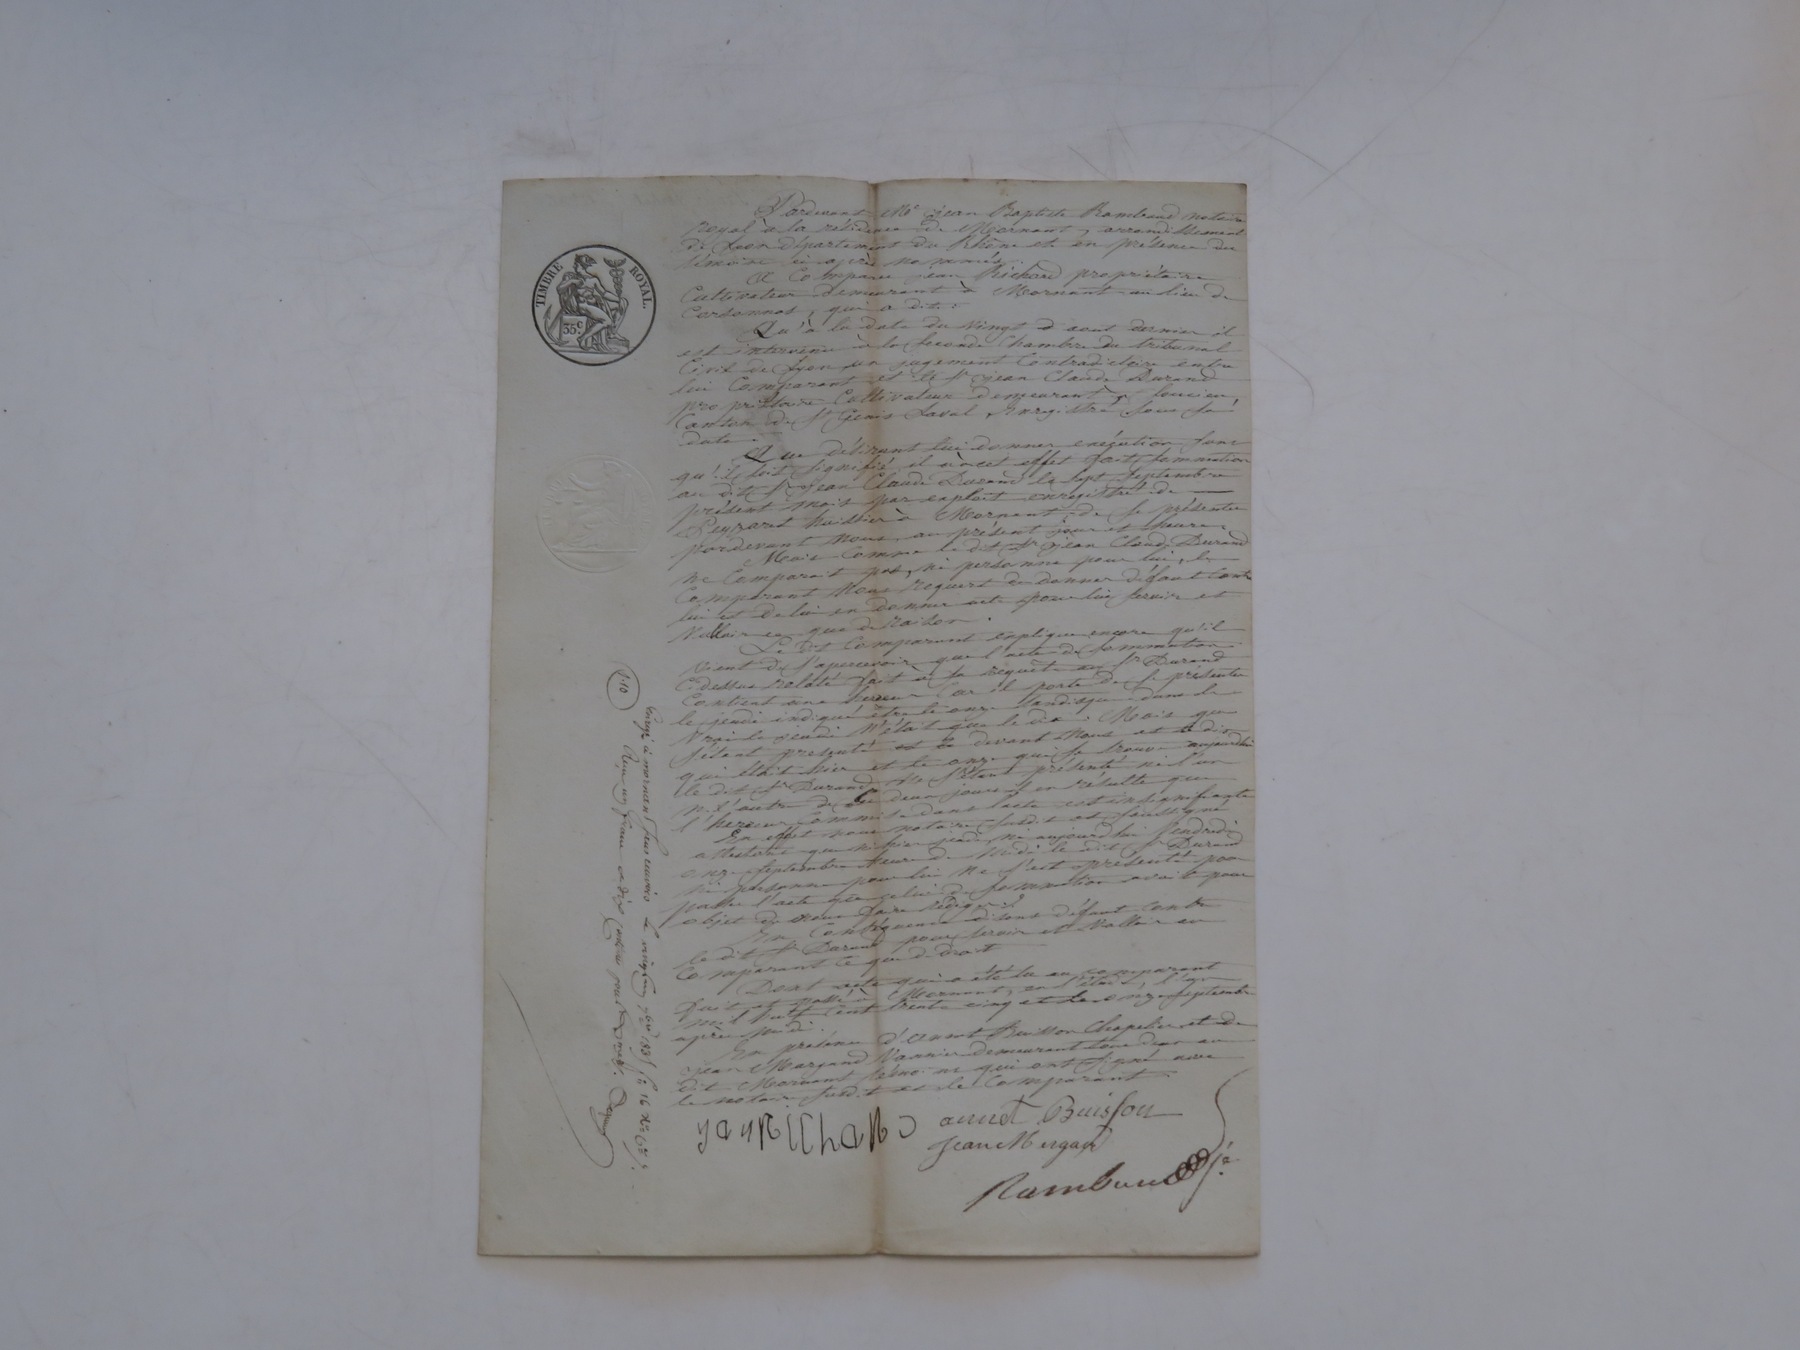 TIMBRE ROYAL
35 c
Pardevant Me jean Baptiste Rambaud notaire
royal à la résidence de Mornant, arrondissement
de Lyon département du Rhône et en présence des
témoins ci après nommés.
A Comparu jean Richard propriétaire
Cultivateur demeurant à Mornant au lieu de
Cordonnas, qui a dit:
Qu'à la date du vingt d aout dernier il
est intervenu à la seconde Chambre du tribunal
Civil de Lyon un jugement Contradictoire entre
lui Comparant et le Sr jean Claude Durand
propriétaire Cultivateur demeurant à Soucieu,
Canton de St Genis Laval, enregistré sous sa
date.
Que désirant lui donner exécution sans
qu'il soit signifié, il a à cet effet fait sommation
au dit Sr jean Claude Durand le sept septembre
présent mois par exploit enregistré de
huissier à Mornant de se présenter
pardevant Nous, au présent jour et heure.
Mais Comme le dit Sr jean Claude Durand
ne Comparait pas, ni personne pour lui, le
Comparant Nous requert de donner défaut Contre
lui et de lui en donner acte pour lui servir et
valloir ce que de raison.
Le dit Comparant explique encore qu'il
vient de s'apercevoir que l'acte de sommation
Cidessus relaté fait à sa requête au Sr Durand
Contient une herreur Car il porte de se présenter
le jeudi indiqué être le onze tandisque dans le
vrai le jeudi n'était que le dix: Mais que
s'étant présenté devant Nous et le dix
qui était hier et le onze qui se trouve aujourdhui
le dit Sr Durand ne s'étant présenté ni l'un
ni l'autre de ces deux jours il en résulte que
l'herreur Commise dans l'acte est insignifiante
En effet nous notaire susdit et soussigné
attestons que ni hier jeudi, ni aujourdhui vendredi
onze septembre heure de Midi le dit Sr Durand
ni personne pour lui ne s'est présenté pour
passer l'acte que celui de sommation avait pour
objet de faire rédiger.
En Conséquence disons défaut contre
le dit Sr Durand pour servir et valloir au
Comparant ce que de droit
Dont acte qui a été lu au comparant
Fait et passé à Mornant, en l'étude, l'an
mil huit cent trente cinq et le onze septembre
après midi.
En présence d'Annet Buisson Chapelier et de
jean Margand Vannier demeurant tous deux au
dit Mornant témoins qui ont signé avec
le notaire susdit et le Comparant.
annet Buisson
Jean Mergan
Rambaud
1.10